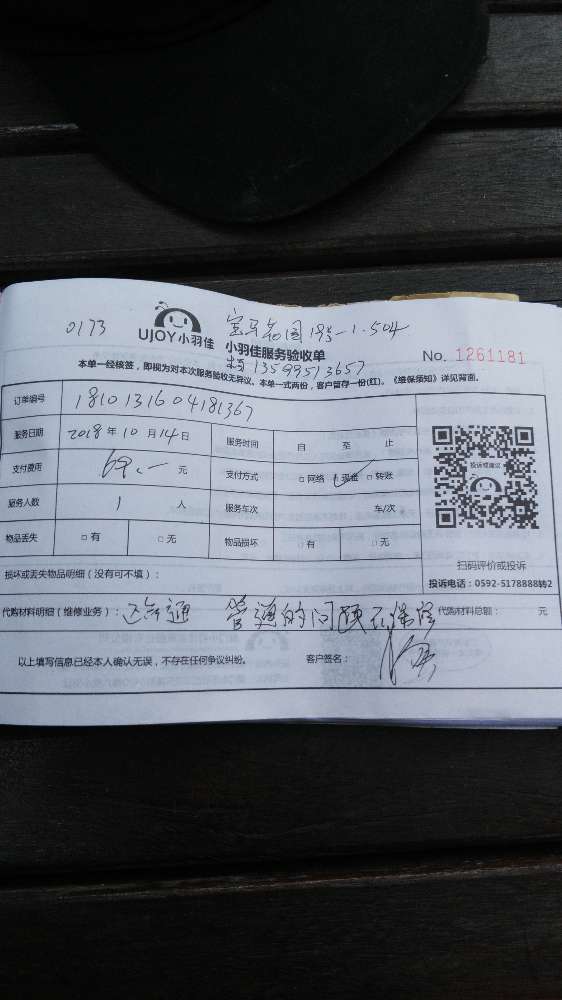 0173
UJOY小羽佳
宝马花园19号-1-504
小羽佳服务验收单
13599513657
No. 1261181
本单一经核签，即视为对本次服务验收无异议。本单一式两份，客户留存一份(红)。《维保须知》详见背面。
订单编号 1810131604181367
服务日期 2018年10月14日 服务时间 自 至 止
支付费用 69.- 元 支付方式 □网络 □现金 □转账
服务人数 1 人 服务车次 车/次
物品丢失 □有 □无 物品损坏 □有 □无
投诉或建议
扫码评价或投诉
投诉电话：0592-5178888转2
损坏或丢失物品明细（没有可不填）：
代购材料明细（维修业务）： 管道的问题不保修 代购材料总额： 元
以上填写信息已经本人确认无误，不存在任何争议纠纷。 客户签名：